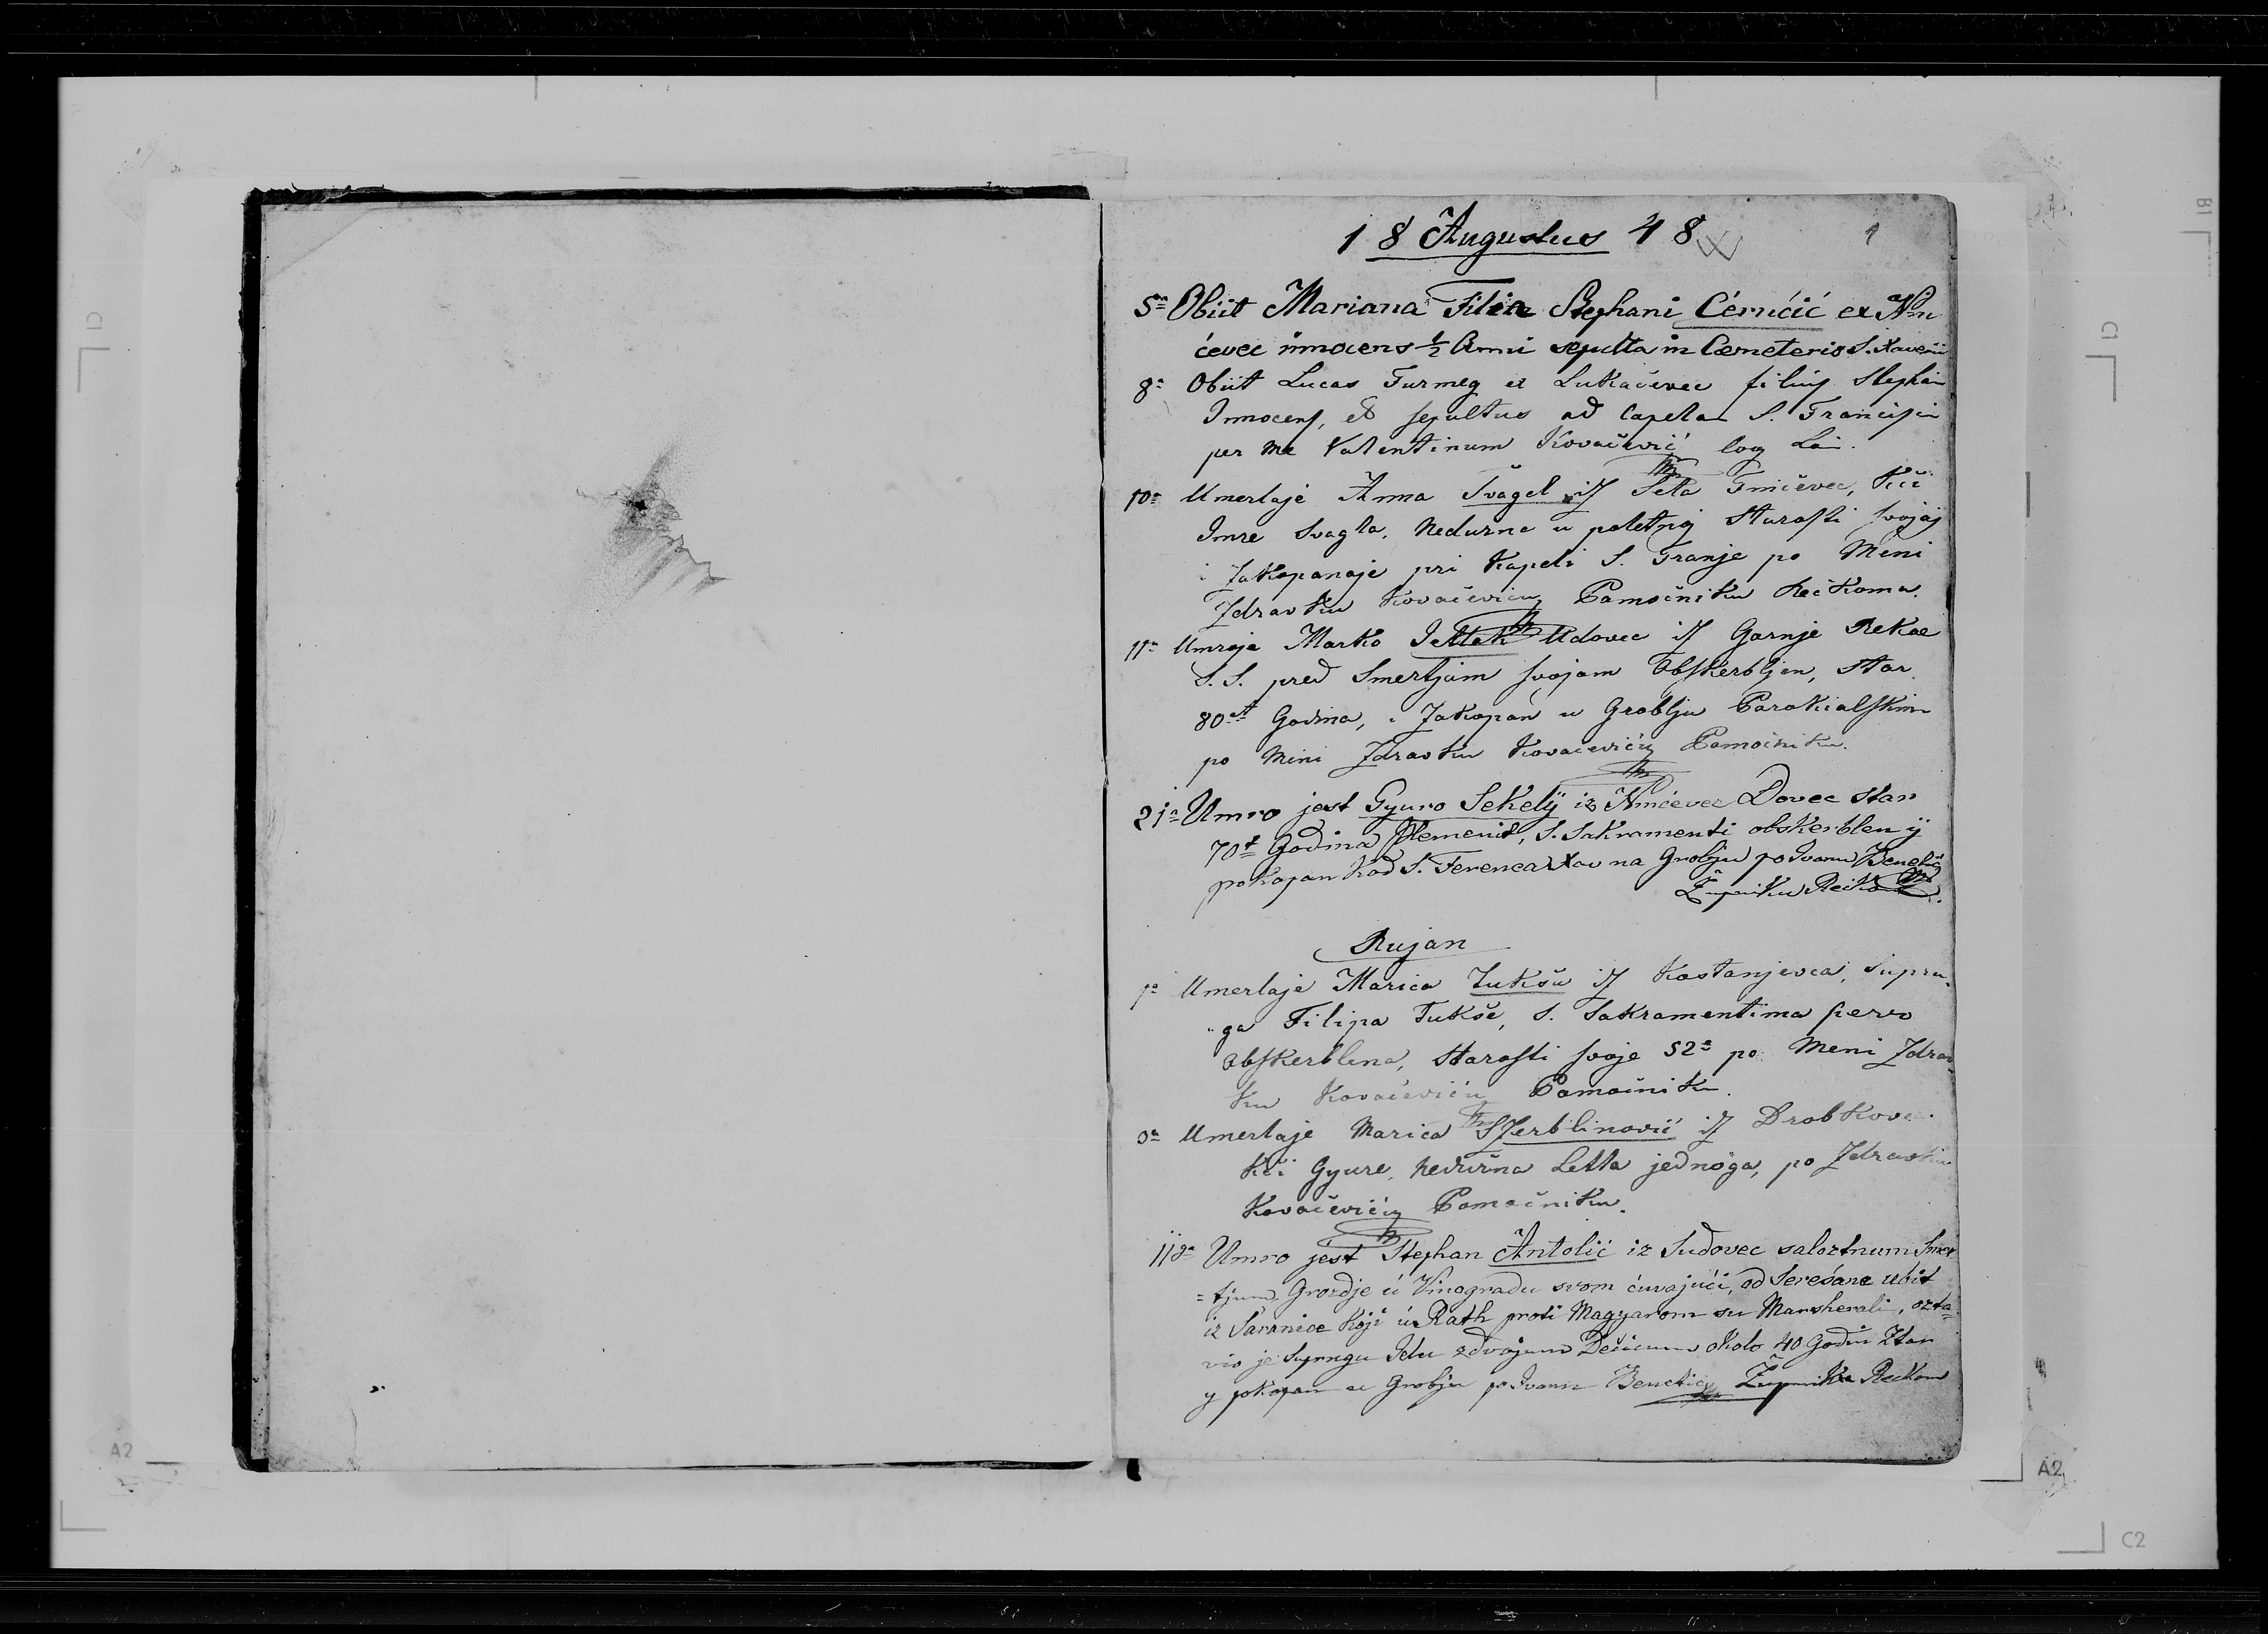 18 Augustus 48
1
5ª Obiit Mariana Filia Stephani Cérnćić ex
ćevec innocens ½ Anni sepulta in Cœmeterio S. Xaverii
8ª Obiit Lucas Turmeg ex Lukačevec filius Stephani
Innocens, et sepultus ad Capelam S. Francisci
per me Valentinum Kovačević
10ª Umerlaje Anna Švagel iz Sela Imičevec, Kči
Imre Svagla. Nedužna u poletnoj Starosti svojoj
i Zakopanaje pri Kapeli S. Franje po Meni
Zdravku Kovačeviću Pomoćniku Rečkoma.
11ª Umroje Marko Udovec iz Gornje Reke
S. S. pred Smertjum svojom Obskerbljen, Star
80 Godina, i Zakopan u Groblju Parokialskim
po Meni Zdravku Kovačeviću Pomoćniku.
21ª Umro jest Gyuro Sekely iz Dovec Star
70t Godina Plemenit, S. Sakramenti obskerblen ij
pokopan Kod S. Ferenca Xav na Grobju po Ivanu Benekiću
Župniku Rečkom.
Rujan
1ª Umerlaje Marica Tukša iz Kostanjevca, Supru-
ga Filipa Tukše, S. Sakramentima pervo
obskerblena, Starosti svoje 52ª po Meni Zdrav-
ku Kovačeviću Pomoćniku.
Umerlaje Marica Szerblinović iz
Kči Gyure, nedužna Letta jednoga, po Zdravku
Kovačeviću Pomoćniku.
Umro jest Stephan Antolić iz Sudovec saloztnum Smer
=tjum, Grozdje ú Vinogradu svom čuvajući, od Serežana ubit
iz Saranice Koji ú Rath proti Magyarom su Marsherali, ozta-
vio je Suprugu Jelu z dvojum Dečicum okolo 40 Godin Ztar
y pokopan na Grobju po Ivanu Benekiću Župniku Rečkom
A2
A2
C1
C1
B1
C2